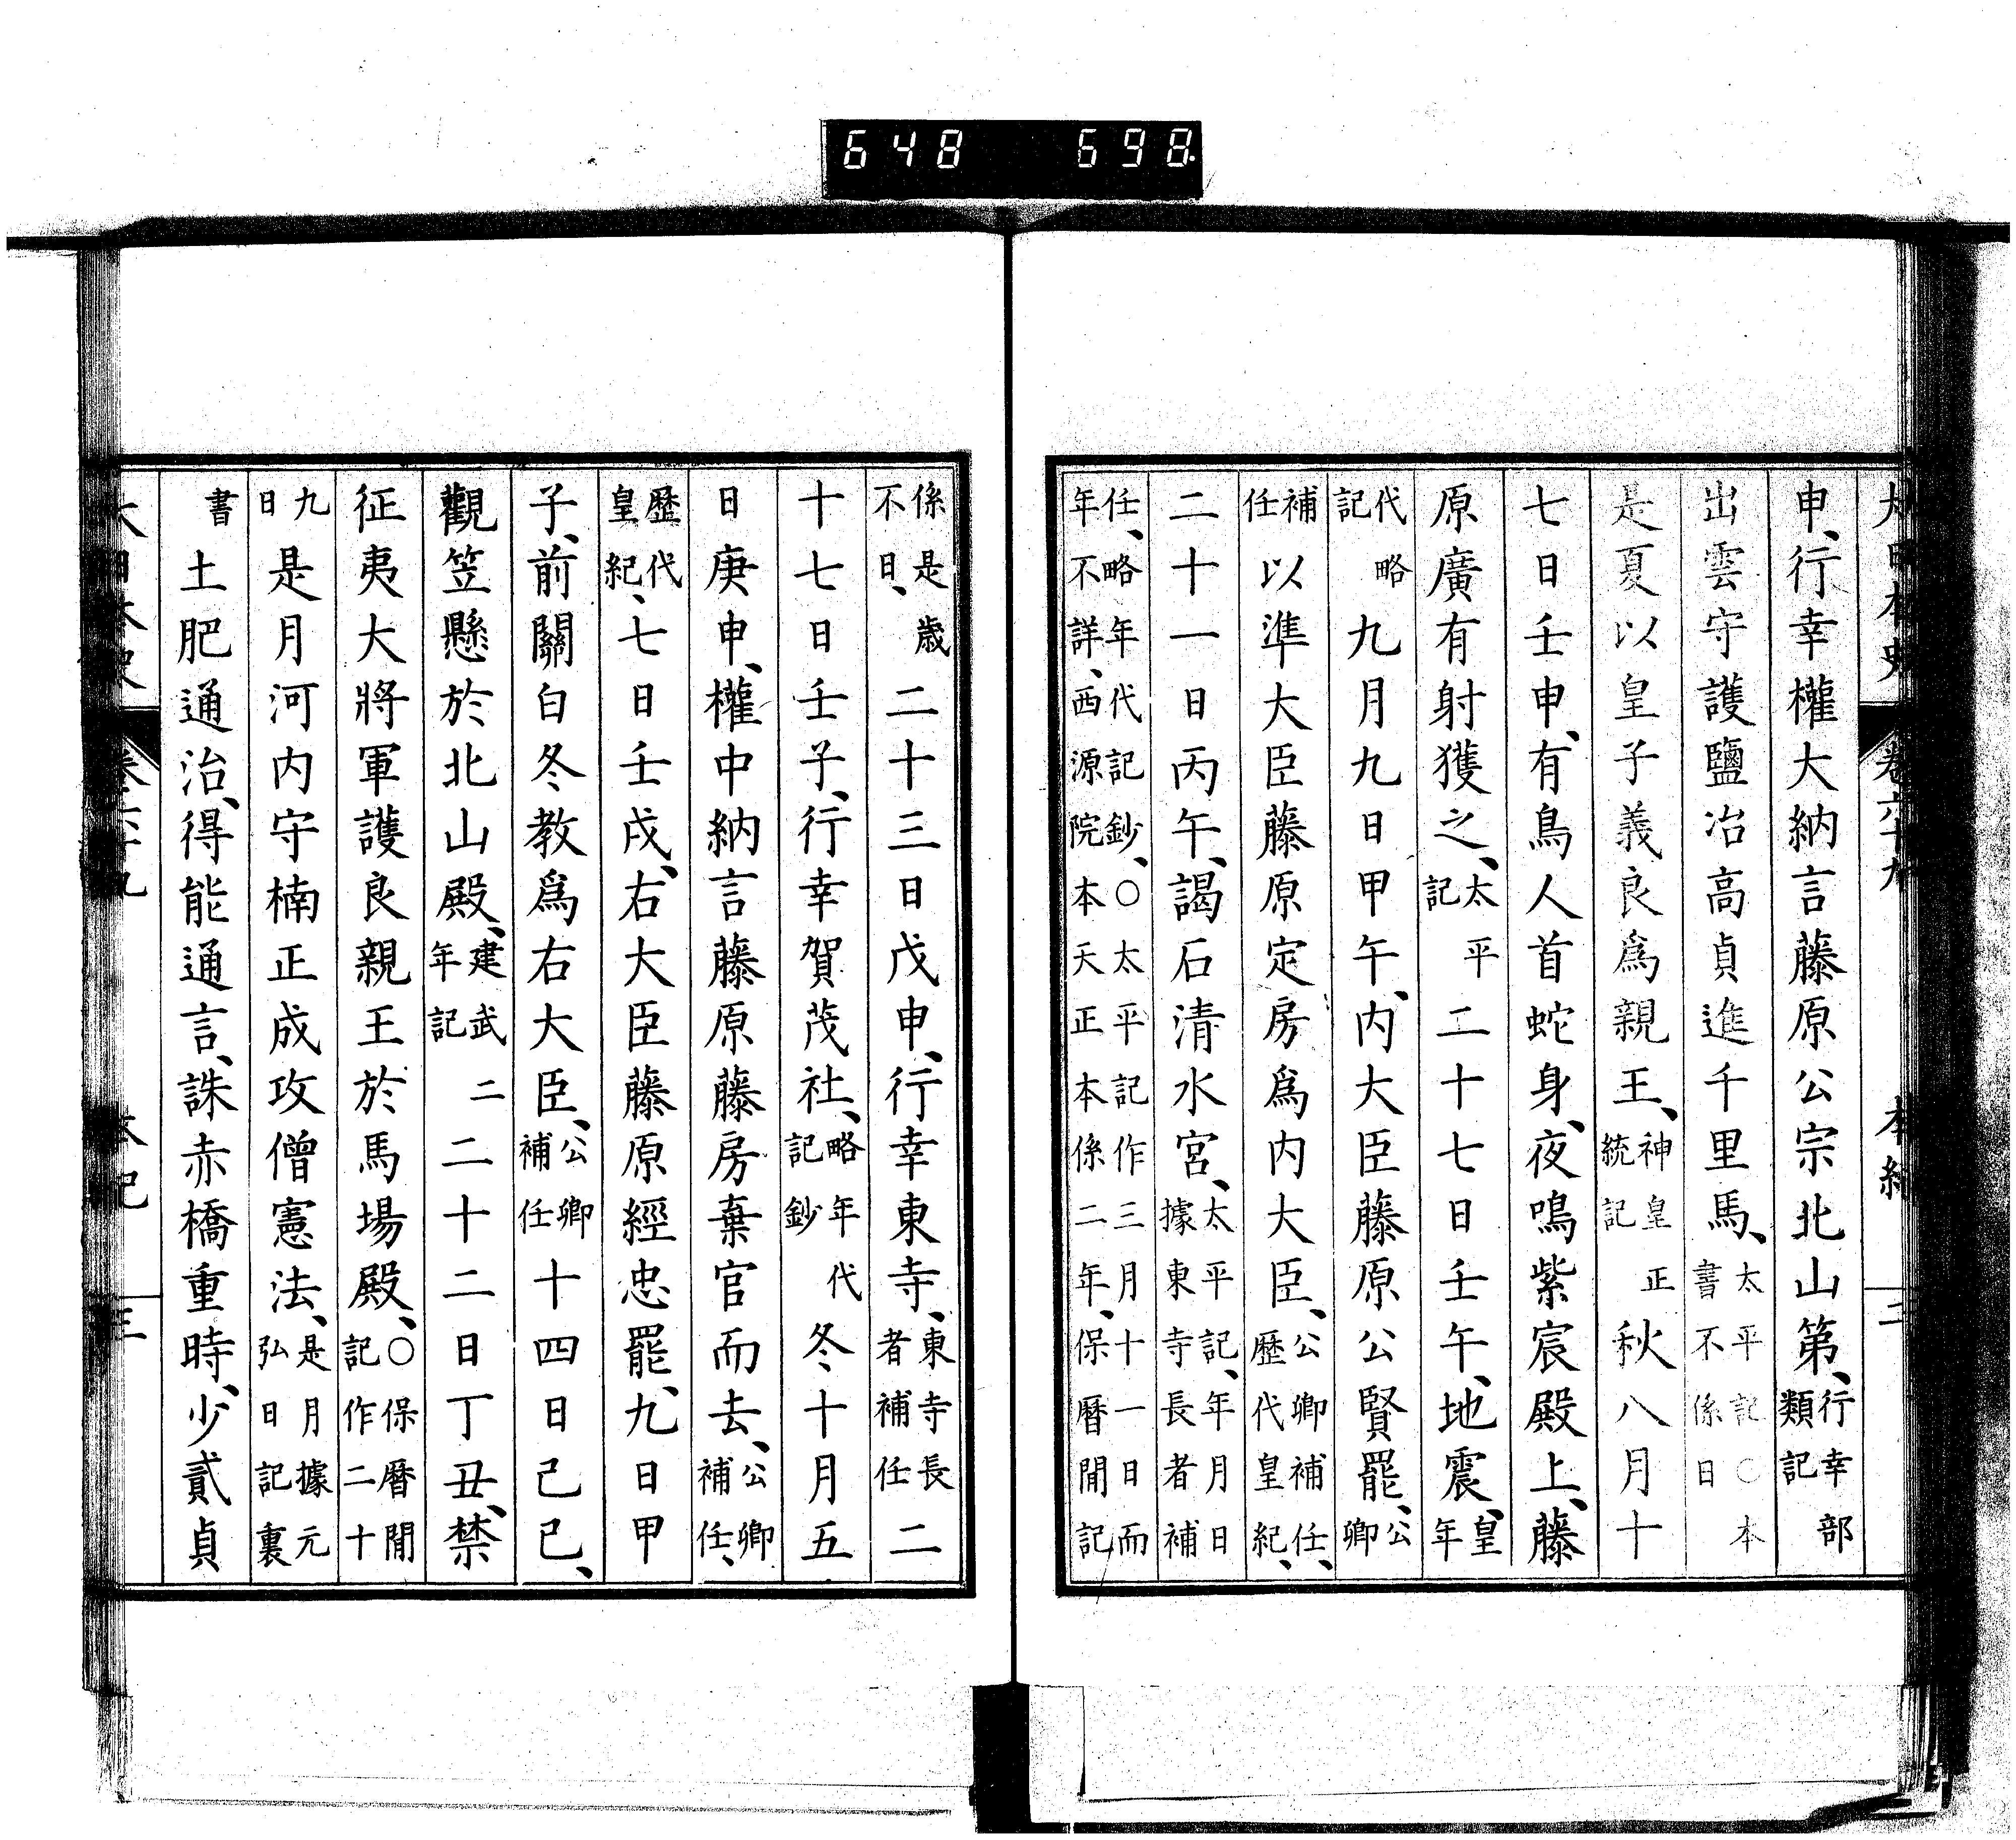 大日本史 卷六十九 本紀 二
申、行幸權大納言藤原公宗北山第、行幸部類記
出雲守護鹽冶高貞進千里馬、太平記○本書不係日
是夏以皇子義良爲親王、神皇正統記 秋八月十
七日壬申、有鳥人首蛇身、夜鳴紫宸殿上、藤
原廣有射獲之、太平記 二十七日壬午、地震、皇年
代略記 九月九日甲午、内大臣藤原公賢罷、公卿
補任 以準大臣藤原定房爲内大臣、公卿補任、歷代皇紀、
二十一日丙午、謁石清水宮、太平記、年月日據東寺長者補
任、略年代記鈔、○太平記作三月十一日而年不詳、西源院本天正本係二年、保曆閒記
係是歲不日、二十三日戊申、行幸東寺、東寺長者補任 二
十七日壬子、行幸賀茂社、略年代記鈔 冬十月五
日庚申、權中納言藤原藤房棄官而去、公卿補任、
歷代皇紀、七日壬戌、右大臣藤原經忠罷、九日甲
子、前關白冬教爲右大臣、公卿補任 十四日己巳、
觀笠懸於北山殿、建武二年記 二十二日丁丑、禁
征夷大將軍護良親王於馬場殿、○保曆閒記作二十
九日 是月河内守楠正成攻僧憲法、是月據元弘日記裏
書 土肥通治、得能通言、誅赤橋重時、少貳貞
大日本史 卷六十九 本紀 三
648 698